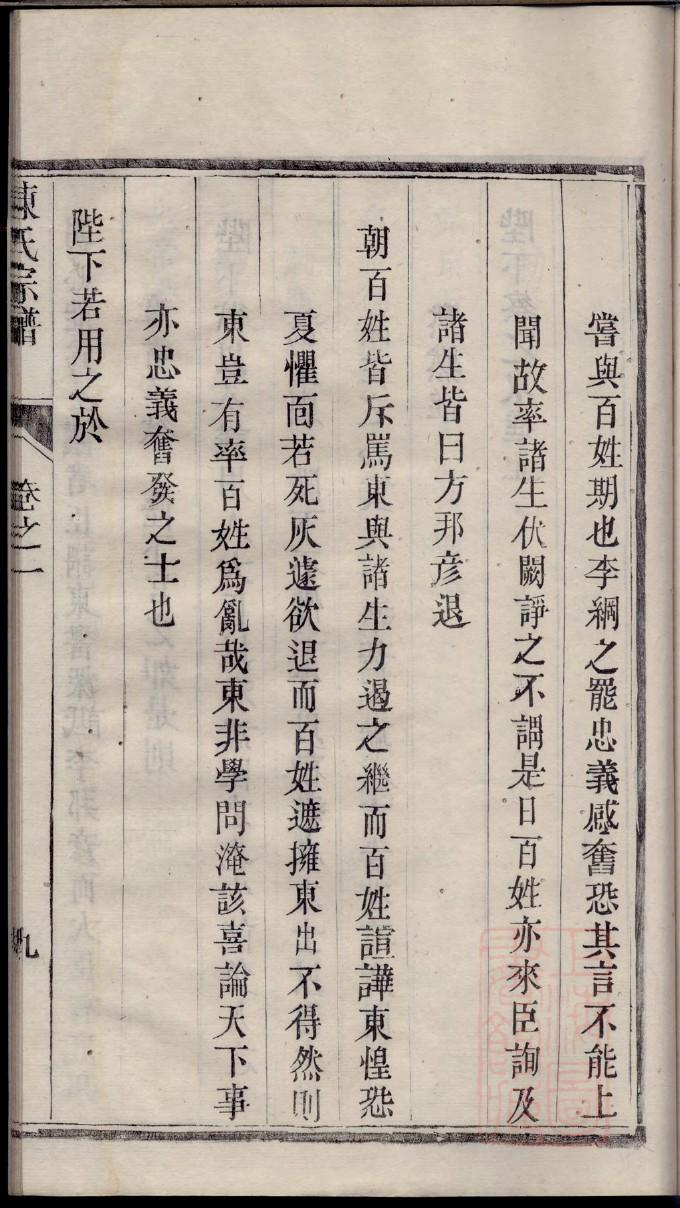 嘗與百姓期也李綱之罷忠義感奮恐其言不能上
聞故率諸生伏闕諍之不謂是日百姓亦來臣詢及
諸生皆曰方邦彥退
朝百姓皆斥罵東與諸生力遏之繼而百姓諠譁東惶恐
夏懼面若死灰遽欲退而百姓遮擁東出不得然則
東豈有率百姓爲亂哉東非學問淹該喜論天下事
亦忠義奮發之士也
陛下若用之於
陳氏宗譜
卷之一
九